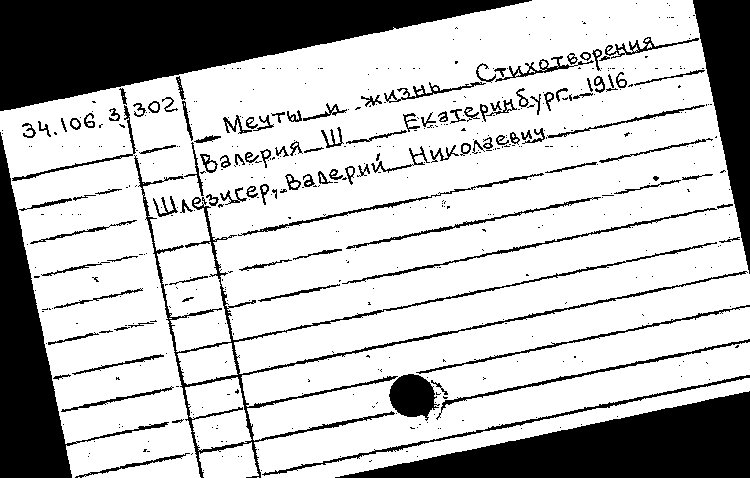 34.106.3.302
Мечты и жизнь Стихотворения
Валерия Ш Екатеринбург, 1916
Шлезигер, Валерий Николаевич